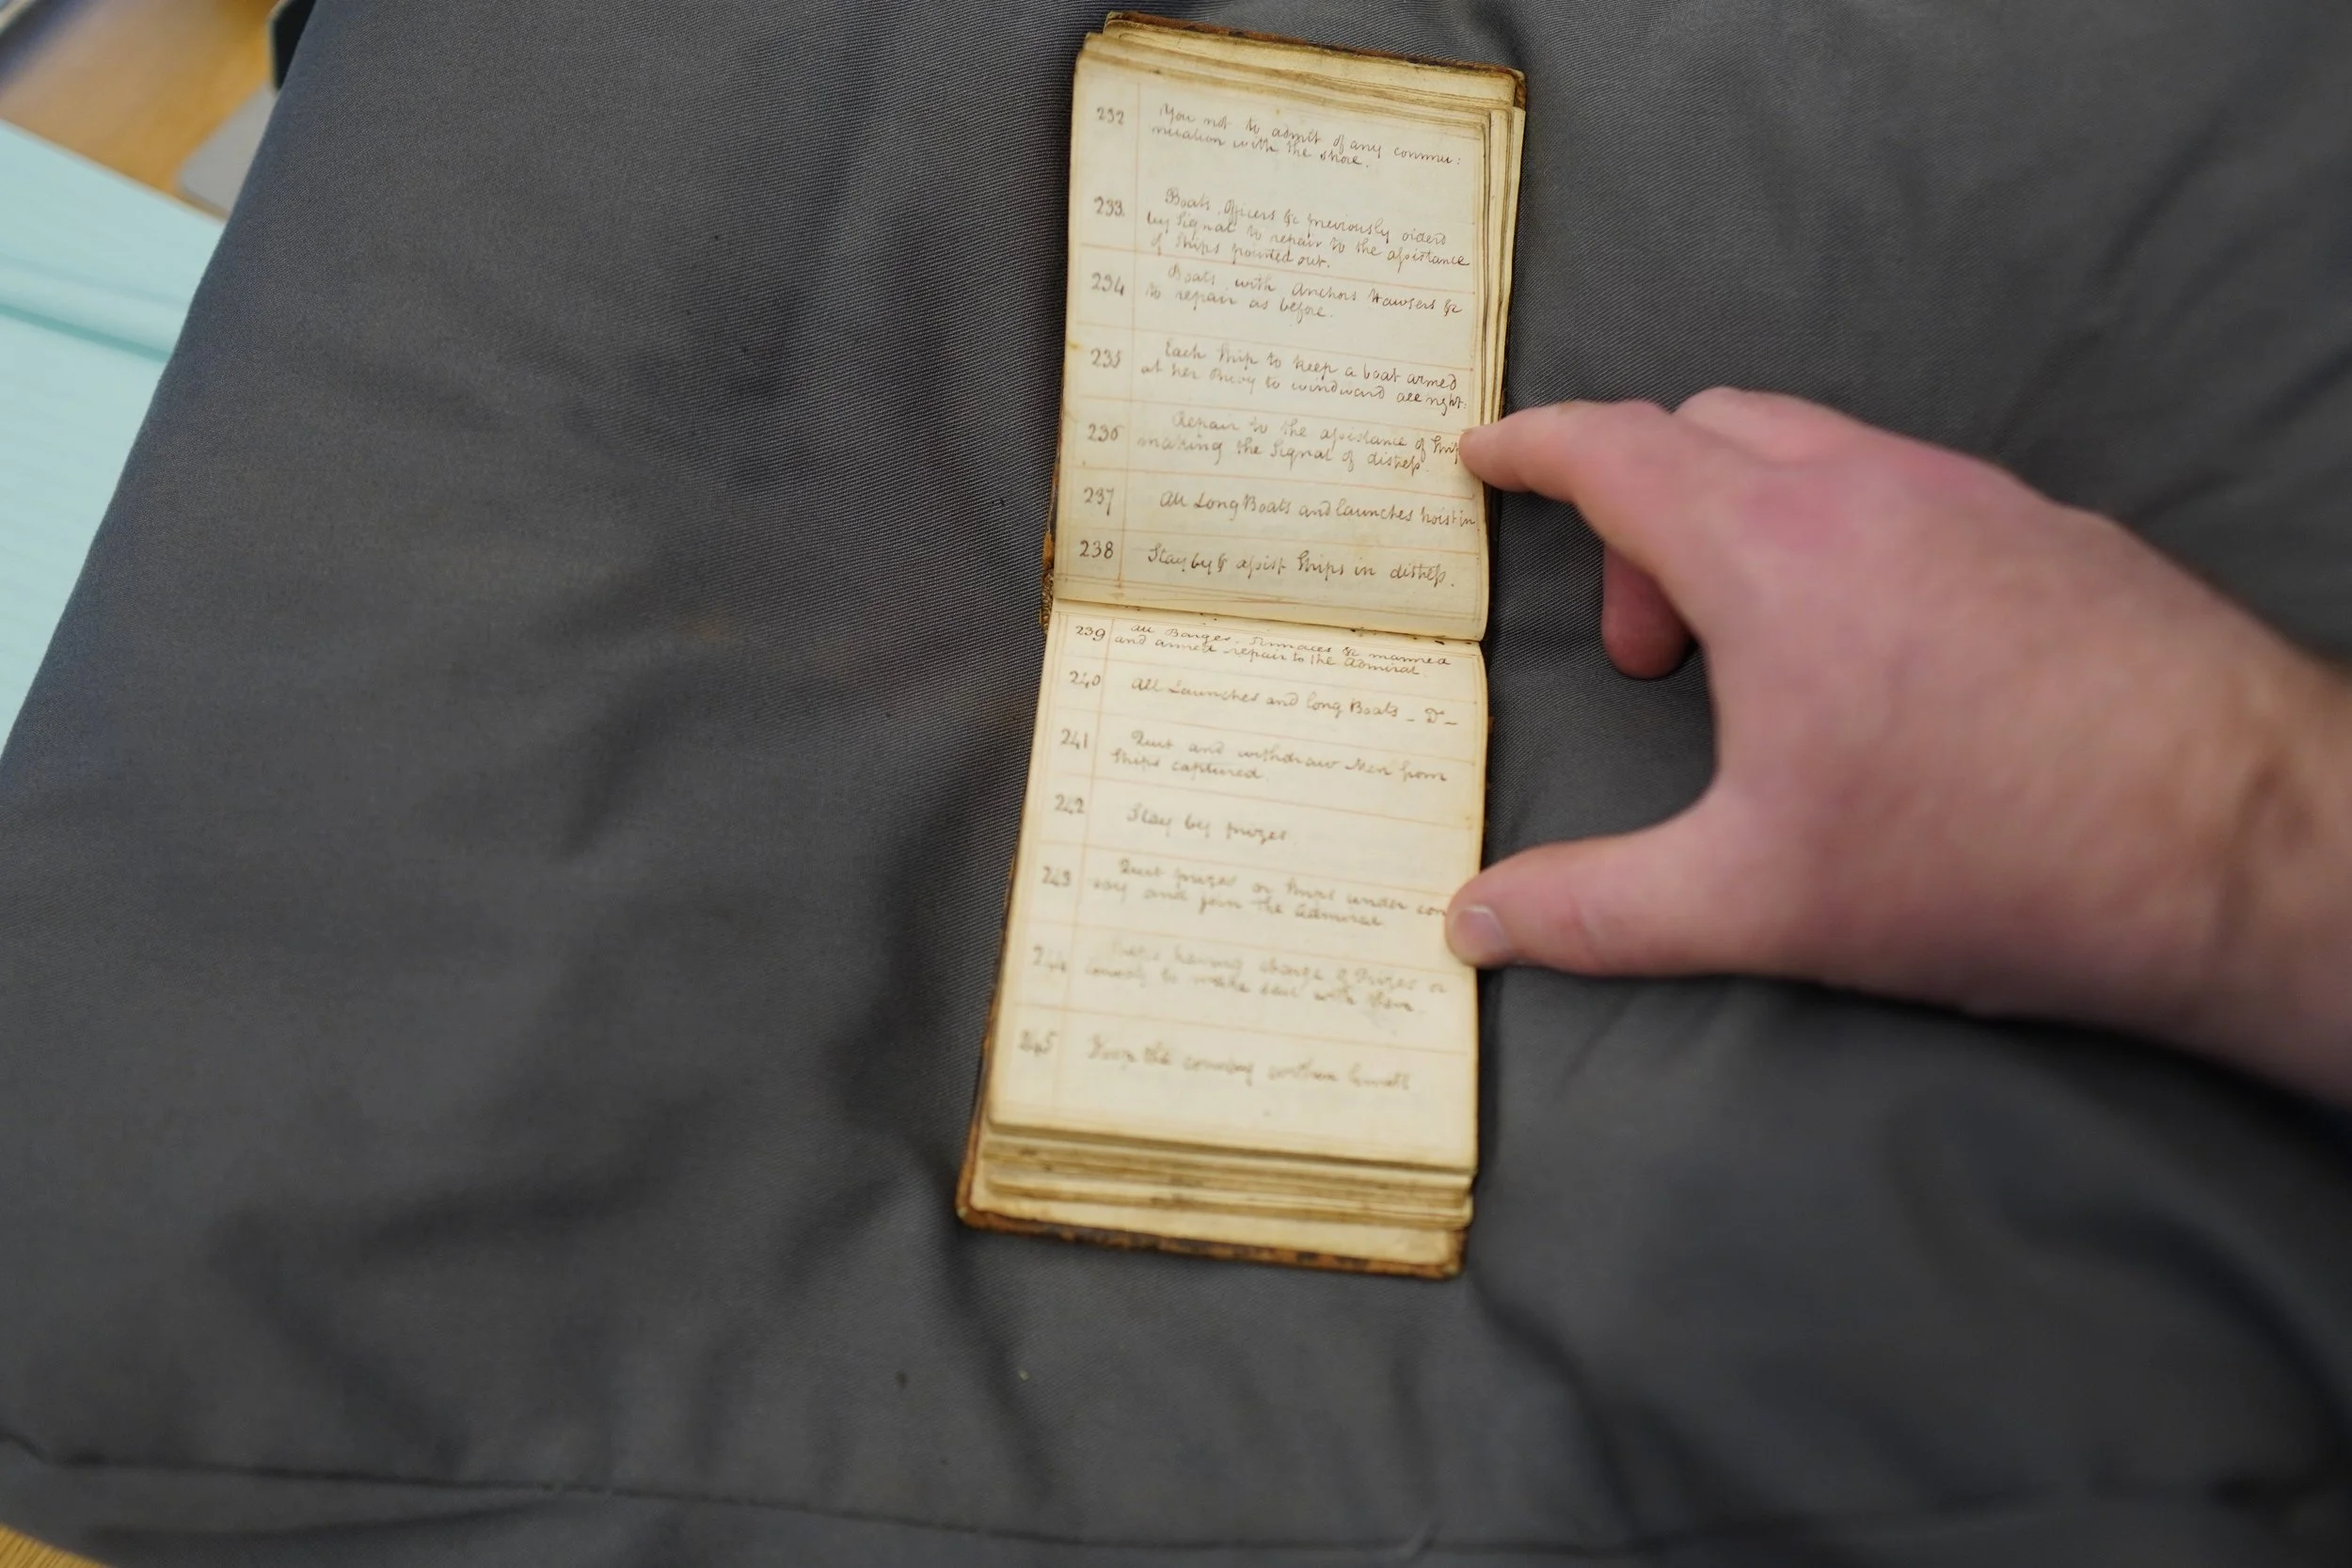 232 You not to admit of any commu:
nication with the shore.
233. Boats, Officers &c previously orderd
by Signal to repair to the assistance
of Ships pointed out.
234 Boats with Anchors Hawsers &c
to repair as before.
235 Each Ship to keep a boat armed
at her Buoy to windward all night:
236 Repair to the assistance of Ship
making the Signal of distress.
237 All Long Boats and launches hoist in
238 Stay by & assist Ships in distress.
239 All Barges, Pinnaces &c manned
and armed repair to the Admiral.
240 All Launches and long Boats _ Do _
241 Quit and withdraw Men from
Ships captured.
242 Stay by prizes
243 Quit prizes or Ships under con
voy and join the Admiral
244 having charge of Prizes or
convoy to make sail with them
245 Keep the convoy within